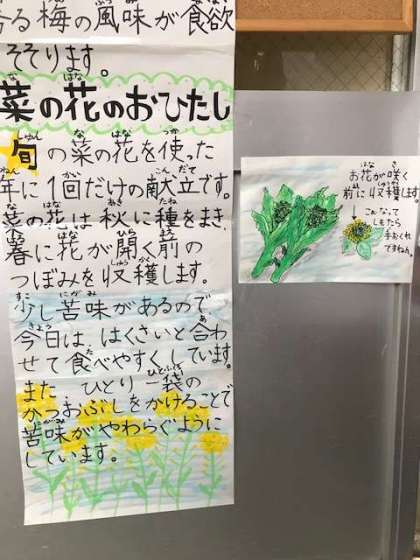 香る梅の風味が食欲
そそります。
菜の花のおひたし
旬の菜の花を使った
年に1回だけの献立です。
菜の花は秋に種をまき、
春に花が開く前の
つぼみを収穫します。
少し苦味があるので
今日は、はくさいと合わ
せて食べやすくしています。
また ひとり一袋の
かつおぶしをかけることで
苦味がやわらぐように
しています。
お花が咲く
前に収穫します
こんなって
しもたら
手おくれ
ですねん。